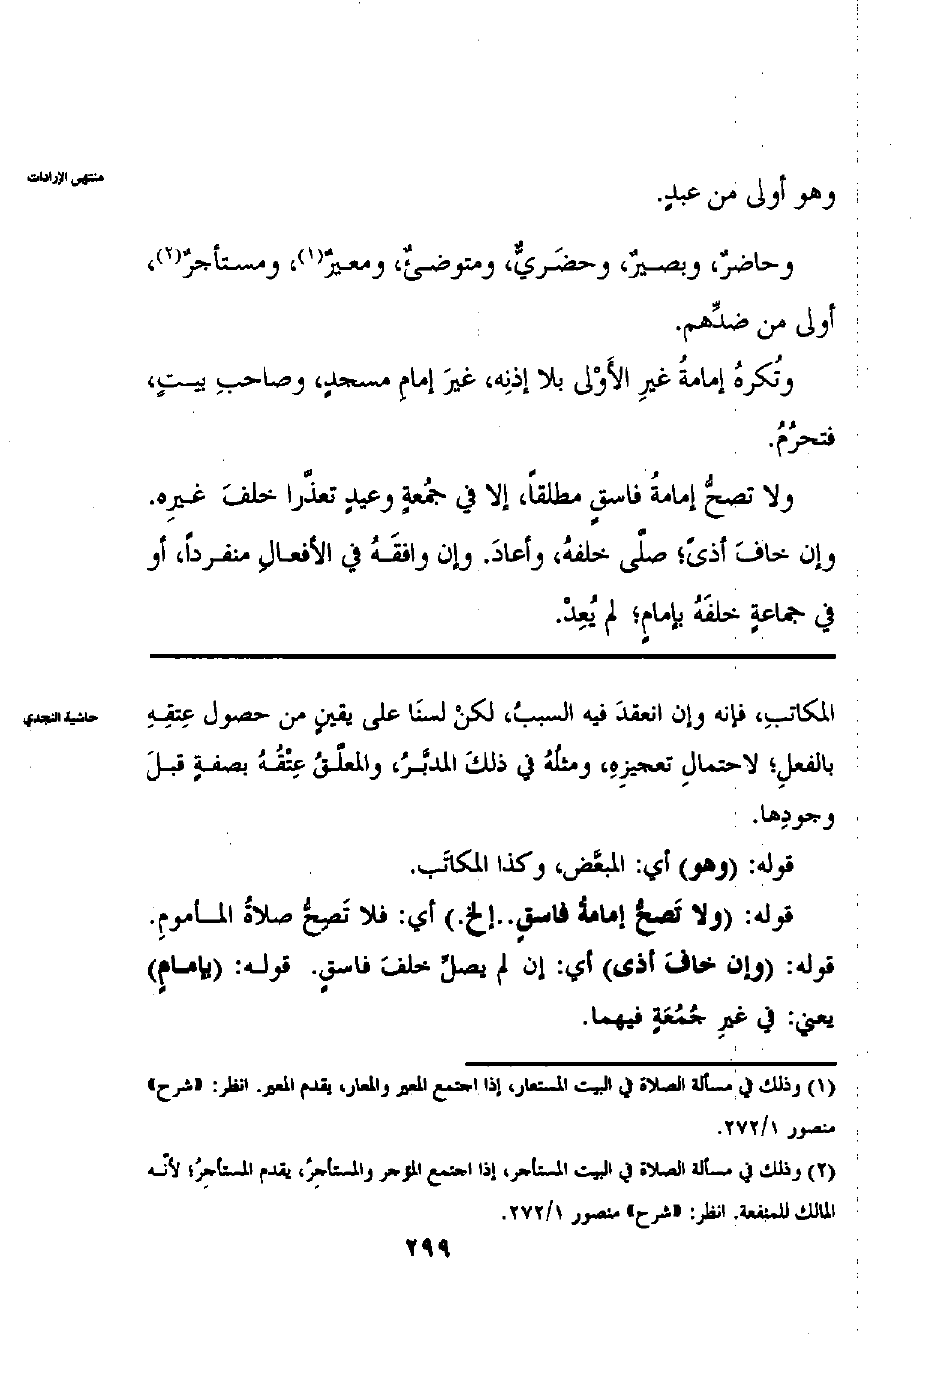 منتهى الإرادات
وهو أولى من عبدٍ.
وحاضرٌ، وبصيرٌ، وحضَريٌّ، ومتوضئٌ، ومعيرٌ(١)، ومستأجرٌ(٢)،
أولى من ضدِّهم.
وتُكرهُ إمامةُ غيرِ الأَوْلى بلا إذنِه، غيرَ إمامِ مسجدٍ، وصاحبِ بيتٍ،
فتحرُمُ.
ولا تصحُّ إمامةُ فاسقٍ مطلقاً، إلا في جمُعةٍ وعيدٍ تعذَّرا خلفَ غيرِه.
وإن خافَ أذىً؛ صلَّى خلفهُ، وأعادَ. وإن وافقَهُ في الأفعالِ منفرداً، أو
في جماعةٍ خلفَهُ بإمامٍ؛ لم يُعِدْ.
حاشية النجدي
المكاتبِ، فإنه وإن انعقدَ فيه السببُ، لكنْ لسنَا على يقينٍ من حصول عِتقِهِ
بالفعلِ؛ لاحتمالِ تعجيزِهِ، ومثلُهُ في ذلكَ المدبَّرُ، والمعلَّقُ عِتْقُهُ بصفةٍ قبلَ
وجودِها.
قوله: (وهو) أي: المبعَّض، وكذا المكاتَب.
قوله: (ولا تَصحُّ إمامةُ فاسقٍ..إلخ.) أي: فلا تَصِحُّ صلاةُ المأمومِ.
قوله: (وإن خافَ أذى) أي: إن لم يصلِّ خلفَ فاسقٍ. قوله: (بإمامٍ)
يعني: في غيرِ جُمُعَةٍ فيهما.
(١) وذلك في مسألة الصلاة في البيت المستعار، إذا اجتمع المعير والمعار، يقدم المعير. انظر: «شرح»
منصور ٢٧٢/١.
(٢) وذلك في مسألة الصلاة في البيت المستأجر، إذا اجتمع المؤجر والمستأجرُ، يقدم المستأجرُ؛ لأنَّه
المالك للمنفعة. انظر: «شرح» منصور ٢٧٢/١.
٢٩٩